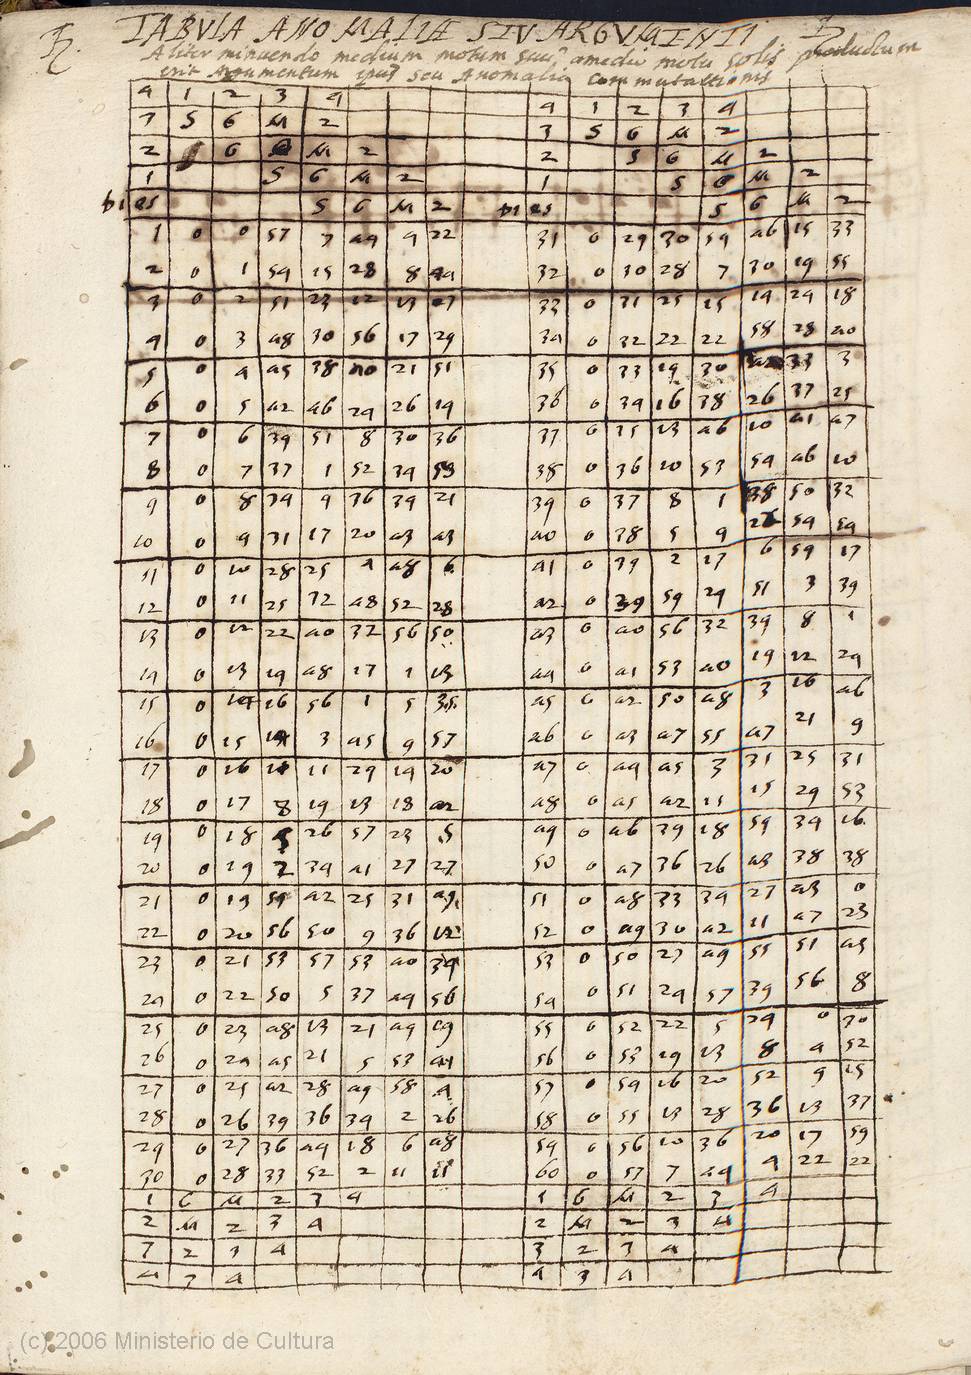 ♄ TABVLA ANOMALIÆ SIV ARGVMENTI ♄
Aliter minuendo medium motum suum, a medio motu solis productum
erit Argumentum ipsius seu Anomalia commutationis
4 1 2 3 4 4 1 2 3 4
3 S G M 2 3 S G M 2
2 G M 2 2 S G M 2
1 S G M 2 1 S G M 2
Dies S G M 2 Dies S G M 2
1 0 0 57 7 44 4 22 31 0 29 30 59 46 15 33
2 0 1 54 15 28 8 44 32 0 30 28 7 30 19 55
3 0 2 51 23 12 13 7 33 0 31 25 15 14 24 18
4 0 3 48 30 56 17 29 34 0 32 22 22 58 28 40
5 0 4 45 38 40 21 51 35 0 33 19 30 42 33 3
6 0 5 42 46 24 26 14 36 0 34 16 38 26 37 25
7 0 6 39 54 8 30 36 37 0 35 13 46 10 41 47
8 0 7 37 1 52 34 59 38 0 36 10 53 54 46 10
9 0 8 34 9 36 39 21 39 0 37 8 1 38 50 32
10 0 9 31 17 20 43 43 40 0 38 5 9 22 54 54
11 0 10 28 25 4 48 6 41 0 39 2 17 6 59 17
12 0 11 25 32 48 52 28 42 0 39 59 24 51 3 39
13 0 12 22 40 32 56 50 43 0 40 56 32 34 8 1
14 0 13 19 48 17 1 13 44 0 41 53 40 19 12 24
15 0 14 16 56 1 5 35 45 0 42 50 48 3 16 46
16 0 15 14 3 45 9 57 46 0 43 47 55 47 21 9
17 0 16 11 11 29 14 20 47 0 44 45 3 31 25 31
18 0 17 8 19 13 18 42 48 0 45 42 11 15 29 53
19 0 18 5 26 57 23 5 49 0 46 39 18 59 34 16
20 0 19 2 34 41 27 27 50 0 47 36 26 43 38 38
21 0 19 59 42 25 31 49 51 0 48 33 34 27 43 0
22 0 20 56 50 9 36 12 52 0 49 30 42 11 47 23
23 0 21 53 57 53 40 34 53 0 50 27 49 55 51 45
24 0 22 50 5 37 44 56 54 0 51 24 57 39 56 8
25 0 23 48 13 21 49 19 55 0 52 22 5 24 0 30
26 0 24 45 21 5 53 41 56 0 53 19 13 8 4 52
27 0 25 42 28 49 58 4 57 0 54 16 20 52 9 15
28 0 26 39 36 34 2 26 58 0 55 13 28 36 13 37
29 0 27 36 44 18 6 48 59 0 56 10 36 20 17 59
30 0 28 33 52 2 11 11 60 0 57 7 44 4 22 22
1 G M 2 3 4 1 G M 2 3 4
2 M 2 3 4 2 M 2 3 4
3 2 3 4 3 2 3 4
4 3 4 4 3 4
(c) 2006 Ministerio de Cultura